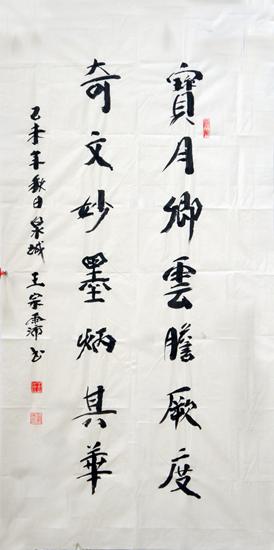 寶月卿雲瞻厥度
奇文妙墨炳其華
乙未年秋日泉城王宗霈書